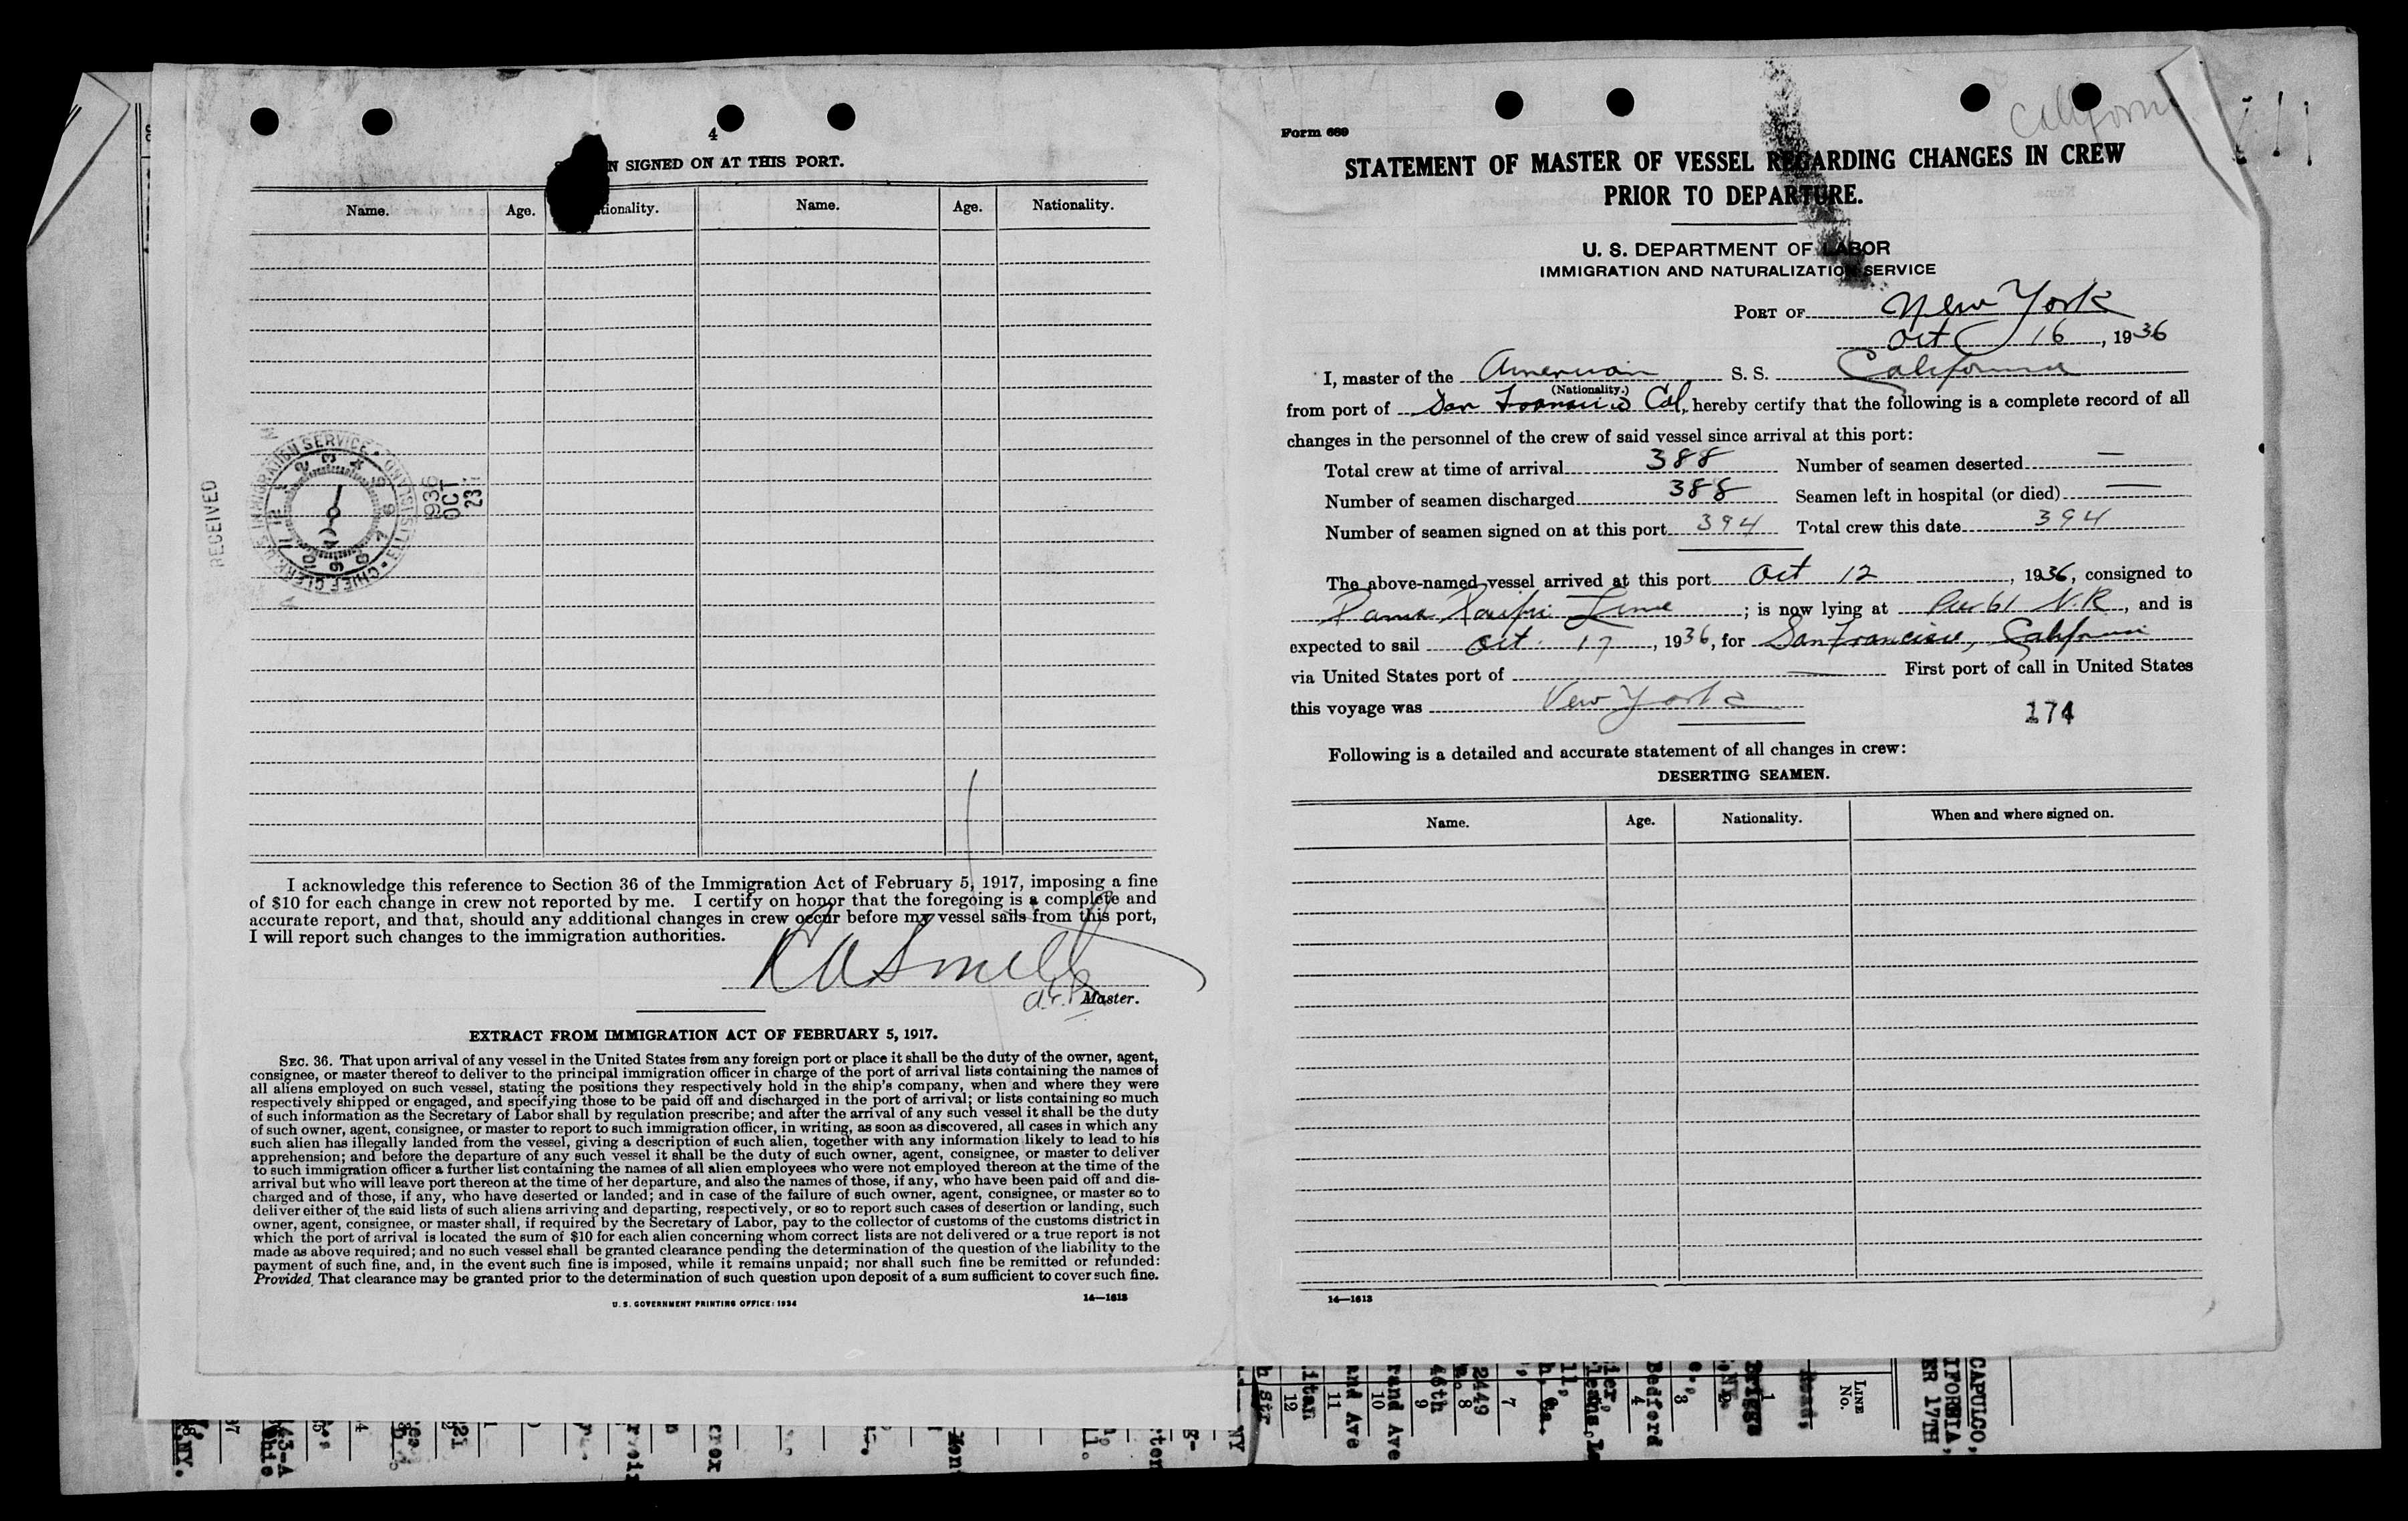 4
N SIGNED ON AT THIS PORT.
Name. Age. tionality. Name. Age. Nationality.
RECEIVED
1936
OCT
23
I acknowledge this reference to Section 36 of the Immigration Act of February 5, 1917, imposing a fine
of $10 for each change in crew not reported by me. I certify on honor that the foregoing is a complete and
accurate report, and that, should any additional changes in crew occur before my vessel sails from this port,
I will report such changes to the immigration authorities.
Master.
EXTRACT FROM IMMIGRATION ACT OF FEBRUARY 5, 1917.
SEC. 36. That upon arrival of any vessel in the United States from any foreign port or place it shall be the duty of the owner, agent,
consignee, or master thereof to deliver to the principal immigration officer in charge of the port of arrival lists containing the names of
all aliens employed on such vessel, stating the positions they respectively hold in the ship's company, when and where they were
respectively shipped or engaged, and specifying those to be paid off and discharged in the port of arrival; or lists containing so much
of such information as the Secretary of Labor shall by regulation prescribe; and after the arrival of any such vessel it shall be the duty
of such owner, agent, consignee, or master to report to such immigration officer, in writing, as soon as discovered, all cases in which any
such alien has illegally landed from the vessel, giving a description of such alien, together with any information likely to lead to his
apprehension; and before the departure of any such vessel it shall be the duty of such owner, agent, consignee, or master to deliver
to such immigration officer a further list containing the names of all alien employees who were not employed thereon at the time of the
arrival but who will leave port thereon at the time of her departure, and also the names of those, if any, who have been paid off and dis-
charged and of those, if any, who have deserted or landed; and in case of the failure of such owner, agent, consignee, or master so to
deliver either of the said lists of such aliens arriving and departing, respectively, or so to report such cases of desertion or landing, such
owner, agent, consignee, or master shall, if required by the Secretary of Labor, pay to the collector of customs of the customs district in
which the port of arrival is located the sum of $10 for each alien concerning whom correct lists are not delivered or a true report is not
made as above required; and no such vessel shall be granted clearance pending the determination of the question of the liability to the
payment of such fine, and, in the event such fine is imposed, while it remains unpaid; nor shall such fine be remitted or refunded:
Provided, That clearance may be granted prior to the determination of such question upon deposit of a sum sufficient to cover such fine.
U. S. GOVERNMENT PRINTING OFFICE: 1934 14—1613
Form 689
STATEMENT OF MASTER OF VESSEL REGARDING CHANGES IN CREW
PRIOR TO DEPARTURE.
U. S. DEPARTMENT OF LABOR
IMMIGRATION AND NATURALIZATION SERVICE
PORT OF New York
Oct 16, 1936
I, master of the American S. S. California
(Nationality.)
from port of San Francisco Cal, hereby certify that the following is a complete record of all
changes in the personnel of the crew of said vessel since arrival at this port:
Total crew at time of arrival 388 Number of seamen deserted —
Number of seamen discharged 388 Seamen left in hospital (or died) —
Number of seamen signed on at this port 394 Total crew this date 394
The above-named vessel arrived at this port Oct 12, 1936, consigned to
Pama Pacific Line; is now lying at Pier 61 N.R., and is
expected to sail Oct. 17, 1936, for San Francisco, California
via United States port of — First port of call in United States
this voyage was New York
174
Following is a detailed and accurate statement of all changes in crew:
DESERTING SEAMEN.
Name. Age. Nationality. When and where signed on.
14—1613
CAPULCO,
IFORNIA,
ER 17TH
LINE
No.